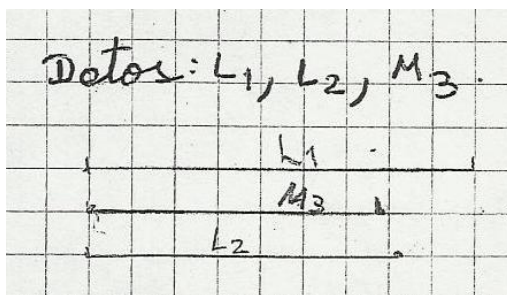 Datos: L1, L2, M3.
L1
M3
L2